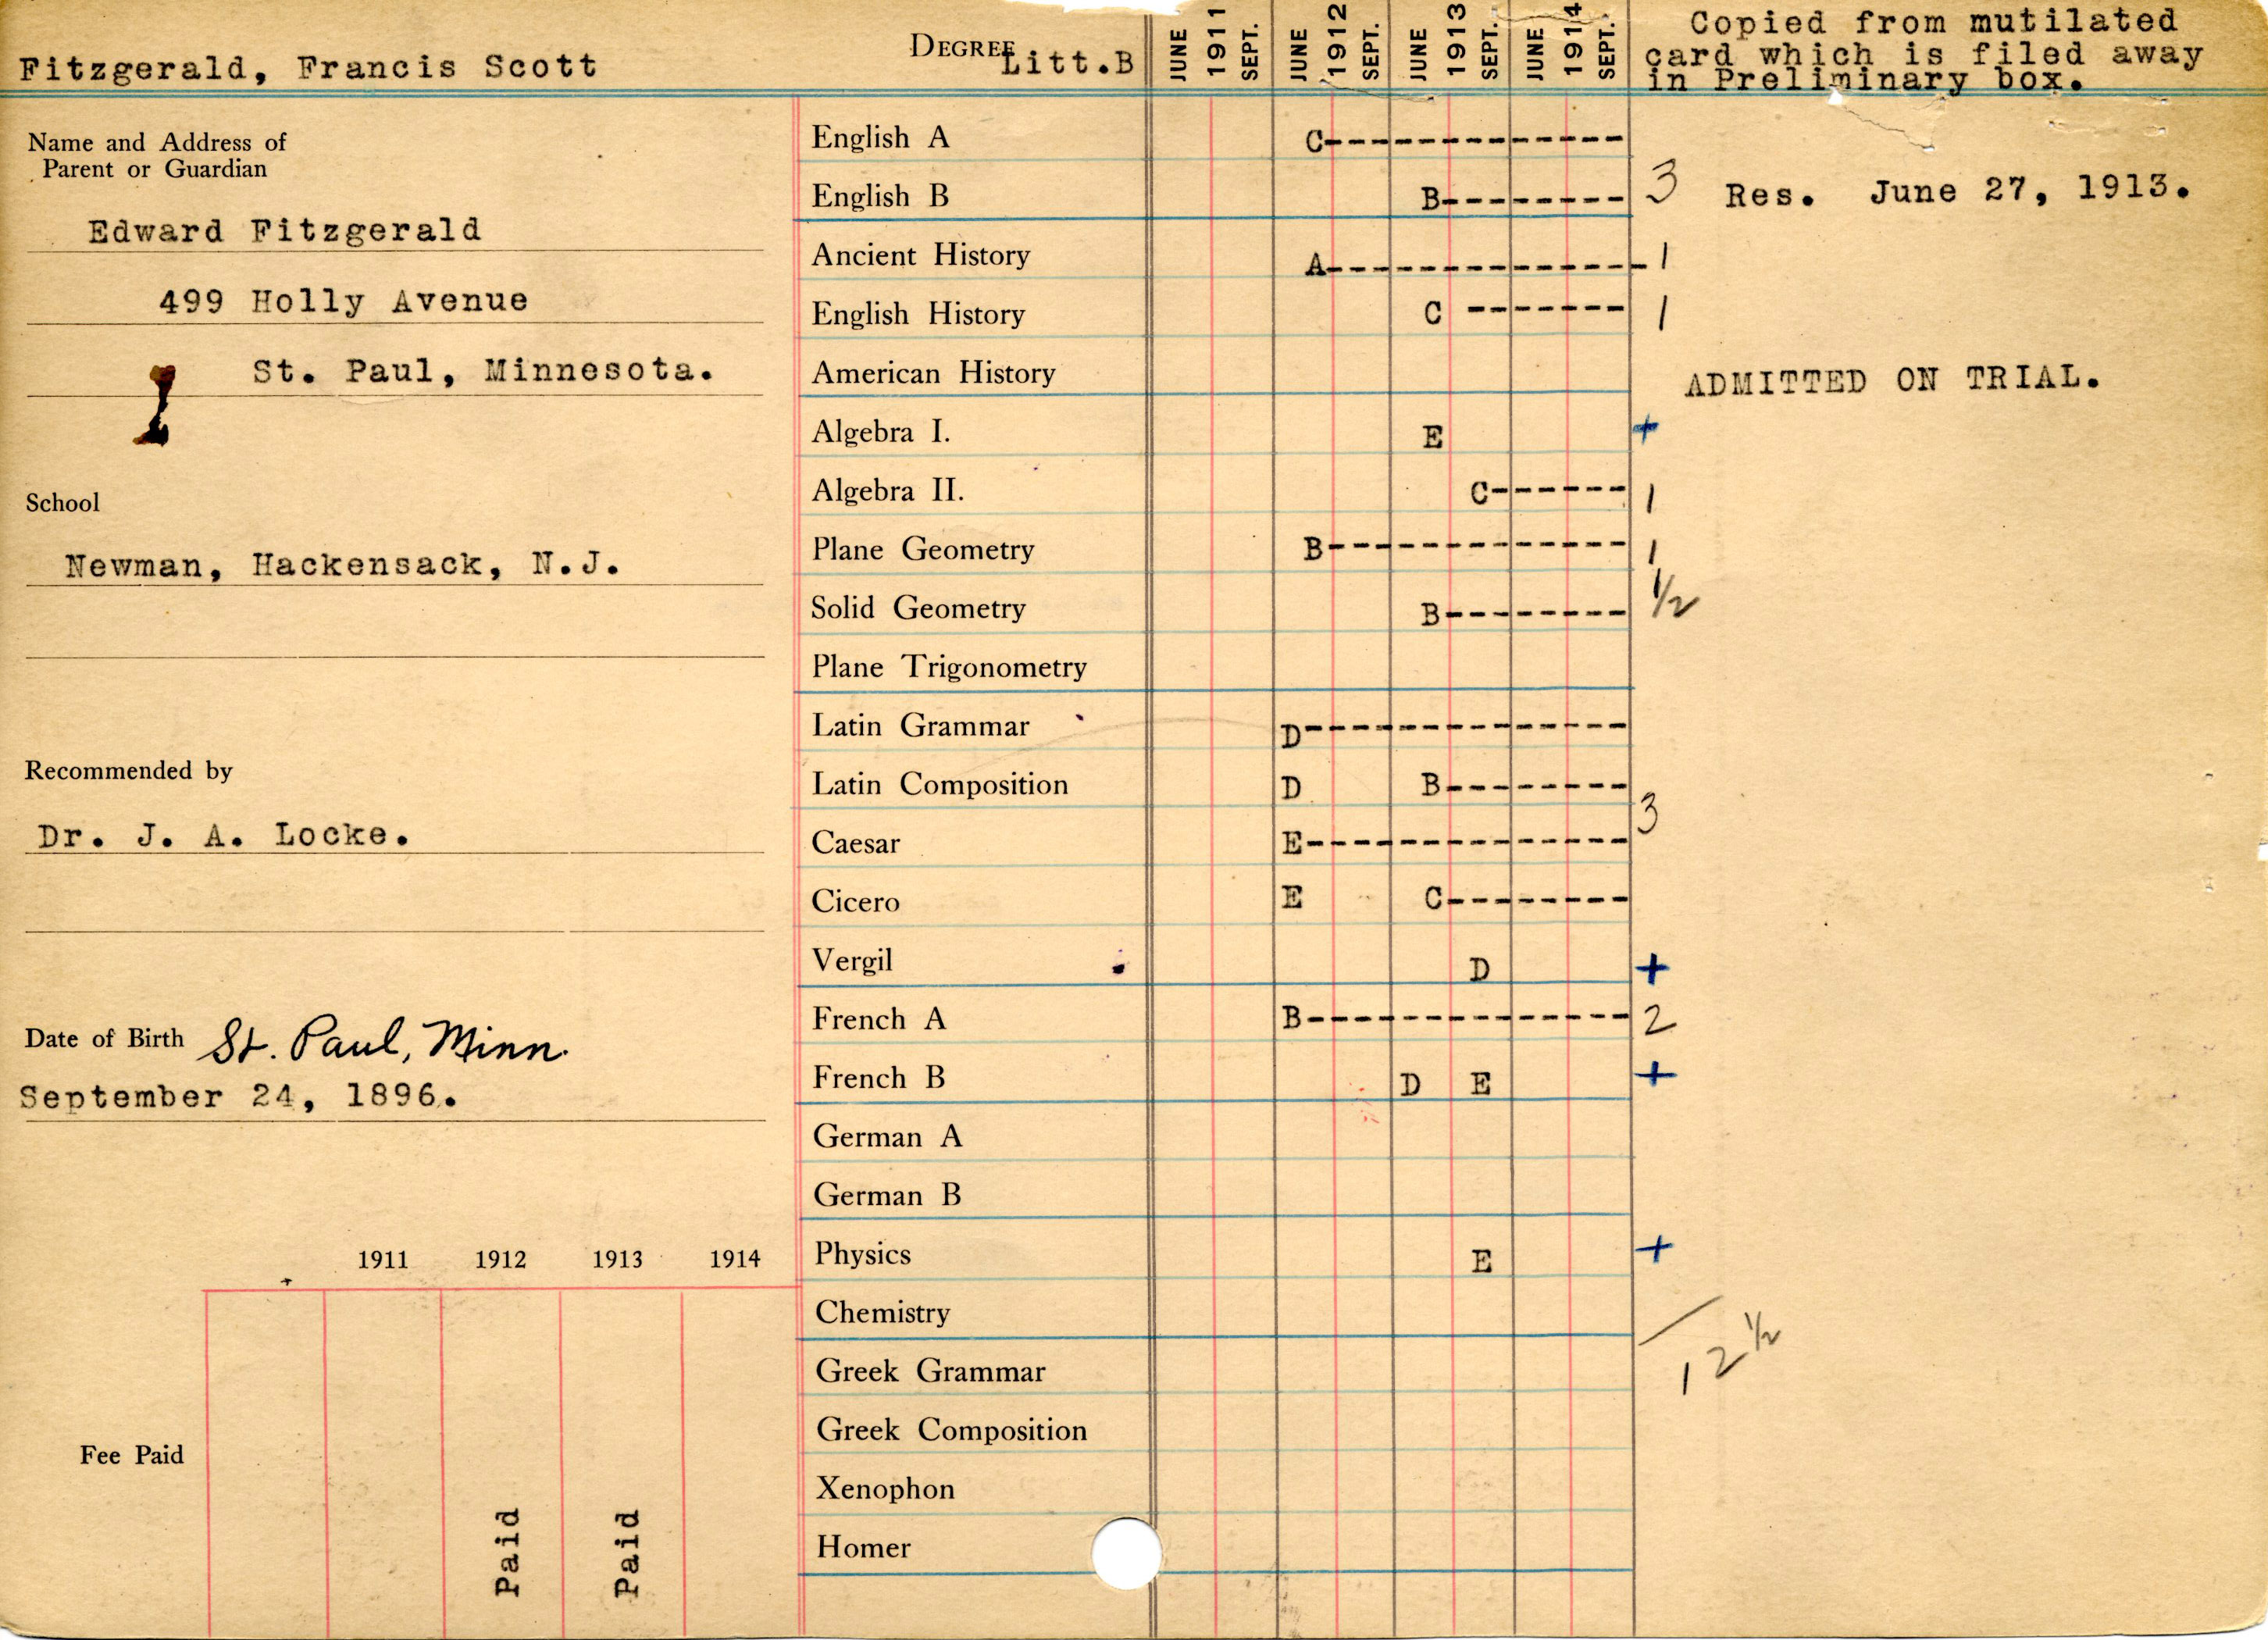 Fitzgerald, Francis Scott
DEGREE Litt.B
JUNE 1911 SEPT. JUNE 1912 SEPT. JUNE 1913 SEPT. JUNE 1914 SEPT.
Copied from mutilated
card which is filed away
in Preliminary box.
Name and Address of
Parent or Guardian
Edward Fitzgerald
499 Holly Avenue
St. Paul, Minnesota.
School
Newman, Hackensack, N.J.
Recommended by
Dr. J. A. Locke.
Date of Birth St. Paul, Minn.
September 24, 1896.
1911 1912 1913 1914
Fee Paid
Paid Paid
English A C-------------
English B B-------- 3
Ancient History A-------------- 1
English History C ------- 1
American History
Algebra I. E +
Algebra II. C------ 1
Plane Geometry B------------- 1
Solid Geometry B-------- 1/2
Plane Trigonometry
Latin Grammar D--------------
Latin Composition D B--------
3
Caesar E--------------
Cicero E C--------
Vergil D +
French A B-------------- 2
French B D E +
German A
German B
Physics E +
Chemistry
Greek Grammar
Greek Composition
Xenophon
Homer
12 1/2
Res. June 27, 1913.
ADMITTED ON TRIAL.